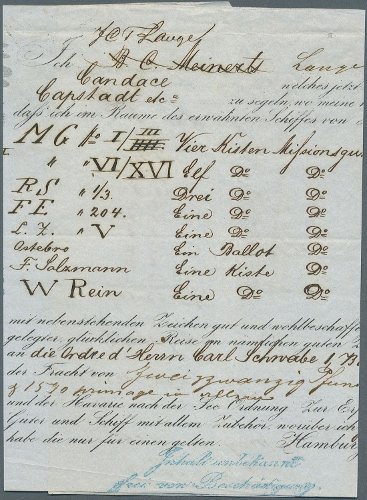 J C T Lange
Ich B. C. Meinerts Lange
Candace welches jetzt
Capstadt etc zu segeln, wo meine
daß ich im Raume des erwähnten Schiffes von
MG No I/IIII Vier Kisten Missionsgut
" " VI/XVI Elf Do Do
RS " 1/3. Drei Do Do
FE " 204. Eine Do Do
L. Z. " V Eine Do Do
Ostebro Ein Ballot Do
F. Salzmann Eine Kiste Do
W Rein Eine Do Do
mit nebenstehenden Zeichen gut und wohlbeschaffen
gelegter, glücklichen Reise an namhaften guten
an die Ordre d Herrn Carl Schwabe
der Fracht von zwei zwanzig
und der Havarie nach der See Ordnung. Zur
Güter und Schiff mit allem Zubehör, worüber ich
habe die nur für einen gelten. Hamburg
Inhalt unbekannt
frei von Beschädigung.